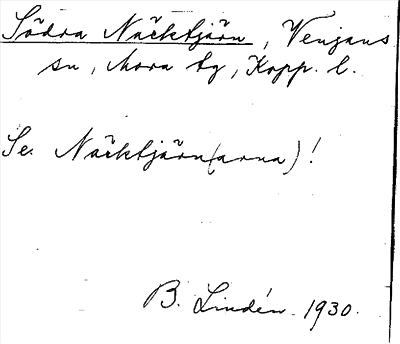 Södra Näcktjärn, Venjans
sn, Mora tg, Kopp. l.
Se. Näcktjärn(arna)!
B. Lindén. 1930.